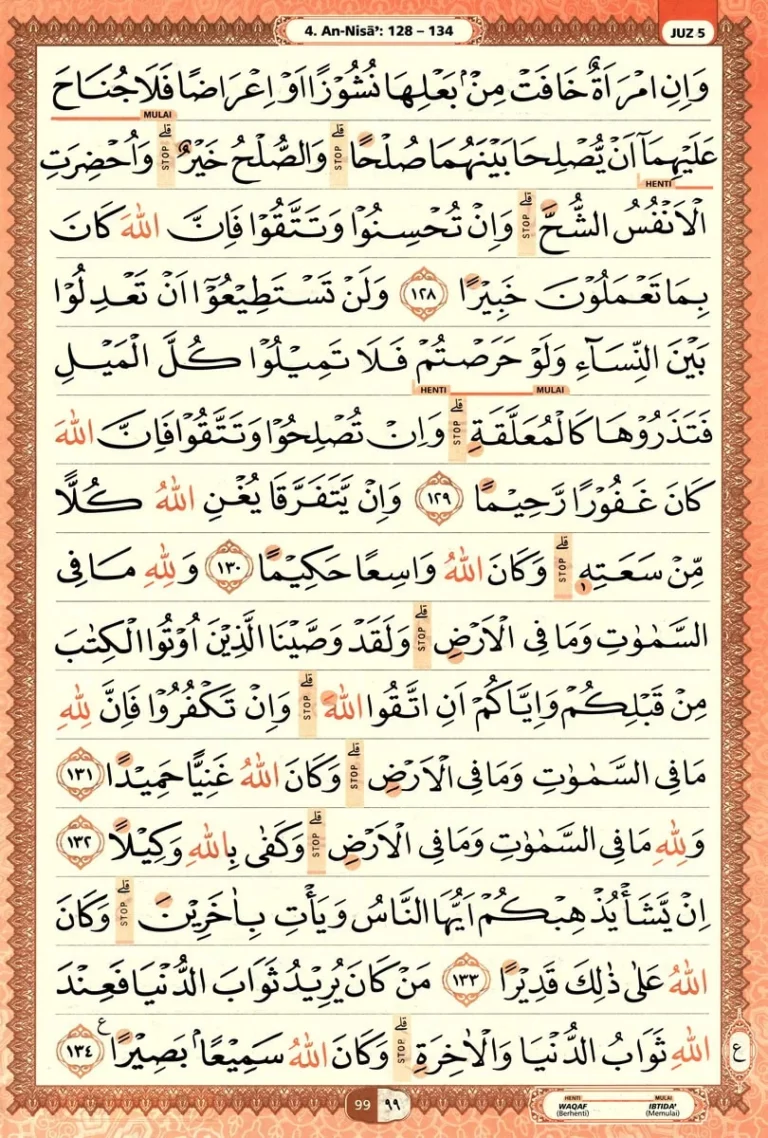 4. An-Nisā': 128 – 134
JUZ 5
وَاِنِ امْرَاَةٌ خَافَتْ مِنْۢ بَعْلِهَا نُشُوْزًا اَوْ اِعْرَاضًا فَلَا جُنَاحَ
MULAI
عَلَيْهِمَآ اَنْ يُّصْلِحَا بَيْنَهُمَا صُلْحًا ۗ STOP وَالصُّلْحُ خَيْرٌ ۗ STOP وَاُحْضِرَتِ
HENTI
الْاَنْفُسُ الشُّحَّ ۗ STOP وَاِنْ تُحْسِنُوْا وَتَتَّقُوْا فَاِنَّ اللّٰهَ كَانَ
بِمَا تَعْمَلُوْنَ خَبِيْرًا ١٢٨ وَلَنْ تَسْتَطِيْعُوْٓا اَنْ تَعْدِلُوْا
بَيْنَ النِّسَاۤءِ وَلَوْ حَرَصْتُمْ فَلَا تَمِيْلُوْا كُلَّ الْمَيْلِ
HENTI MULAI
فَتَذَرُوْهَا كَالْمُعَلَّقَةِ ۗ STOP وَاِنْ تُصْلِحُوْا وَتَتَّقُوْا فَاِنَّ اللّٰهَ
كَانَ غَفُوْرًا رَّحِيْمًا ١٢٩ وَاِنْ يَّتَفَرَّقَا يُغْنِ اللّٰهُ كُلًّا
مِّنْ سَعَتِهٖ ۗ STOP وَكَانَ اللّٰهُ وَاسِعًا حَكِيْمًا ١٣٠ وَلِلّٰهِ مَا فِى
السَّمٰوٰتِ وَمَا فِى الْاَرْضِ ۗ STOP وَلَقَدْ وَصَّيْنَا الَّذِيْنَ اُوْتُوا الْكِتٰبَ
مِنْ قَبْلِكُمْ وَاِيَّاكُمْ اَنِ اتَّقُوا اللّٰهَ ۗ STOP وَاِنْ تَكْفُرُوْا فَاِنَّ لِلّٰهِ
مَا فِى السَّمٰوٰتِ وَمَا فِى الْاَرْضِ ۗ STOP وَكَانَ اللّٰهُ غَنِيًّا حَمِيْدًا ١٣١
وَلِلّٰهِ مَا فِى السَّمٰوٰتِ وَمَا فِى الْاَرْضِ ۗ STOP وَكَفٰى بِاللّٰهِ وَكِيْلًا ١٣٢
اِنْ يَّشَأْ يُذْهِبْكُمْ اَيُّهَا النَّاسُ وَيَأْتِ بِاٰخَرِيْنَ ۗ STOP وَكَانَ
اللّٰهُ عَلٰى ذٰلِكَ قَدِيْرًا ١٣٣ مَنْ كَانَ يُرِيْدُ ثَوَابَ الدُّنْيَا فَعِنْدَ
اللّٰهِ ثَوَابُ الدُّنْيَا وَالْاٰخِرَةِ ۗ STOP وَكَانَ اللّٰهُ سَمِيْعًاۢ بَصِيْرًا ࣖ ١٣٤
ع
99 ٩٩
HENTI MULAI
WAQAF IBTIDA'
(Berhenti) (Memulai)